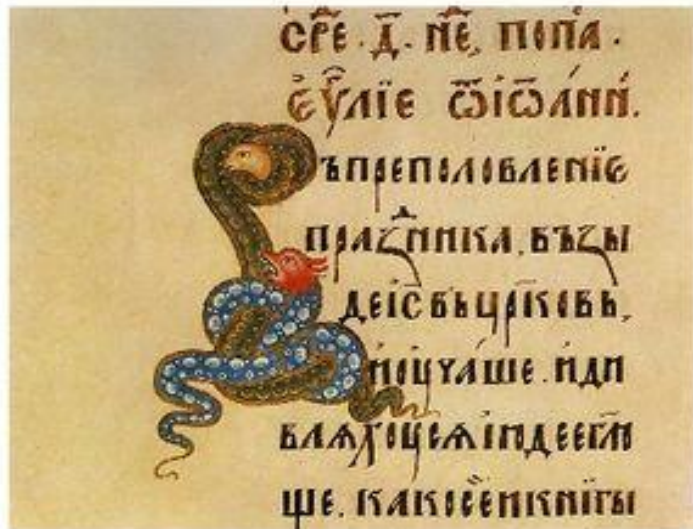 СРЕ҃. Д҃. НЕ҃, ПОПА́.
ЄѴ҃ЛЇЕ Ѿ ІѠА́НН.
Ъ ПРЕПОЛОВЛЕНЇЄ
ПРАꙀⷣНИКА. ВЪꙀЫ
ДЕ ІС҃ ВЪ ЦР҃КОВЬ,
И ОУЧА́ШЕ. И ДИ
ВЛѦХОУСѦ ІЮДЕЕ ГЛ҃Ю
ЩЕ. КАКО СЕ́И КНИ҃ГЫ